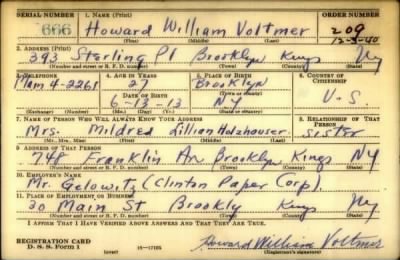 SERIAL NUMBER 1. NAME (Print) ORDER NUMBER
666 Howard William Voltmer 209
(First) (Middle) (Last) 12-3-40
2. ADDRESS (Print)
393 Sterling Pl Brooklyn Kings Ny
(Number and street or R. F. D. number) (Town) (County) (State)
3. TELEPHONE 4. AGE IN YEARS 5. PLACE OF BIRTH 6. COUNTRY OF CITIZENSHIP
Main 4-2261 27 Brooklyn
DATE OF BIRTH (Town or county)
6-13-13 NY U.S.
(Exchange) (Number) (Mo.) (Day) (Yr.) (State or country)
7. NAME OF PERSON WHO WILL ALWAYS KNOW YOUR ADDRESS 8. RELATIONSHIP OF THAT PERSON
Mrs. Mildred Lillian Holzhouser Sister
(Mr., Mrs., Miss) (First) (Middle) (Last)
9. ADDRESS OF THAT PERSON
748 Franklin Av Brooklyn Kings NY
(Number and street or R. F. D. number) (Town) (County) (State)
10. EMPLOYER'S NAME
Mr. Gelowitz (Clinton Paper Corp).
11. PLACE OF EMPLOYMENT OR BUSINESS
30 Main St Brookly Kings Ny
(Number and street or R. F. D. number) (Town) (County) (State)
I AFFIRM THAT I HAVE VERIFIED ABOVE ANSWERS AND THAT THEY ARE TRUE.
REGISTRATION CARD
D. S. S. Form 1 (over) 16-17105 Howard William Voltmer
(Registrant's signature)